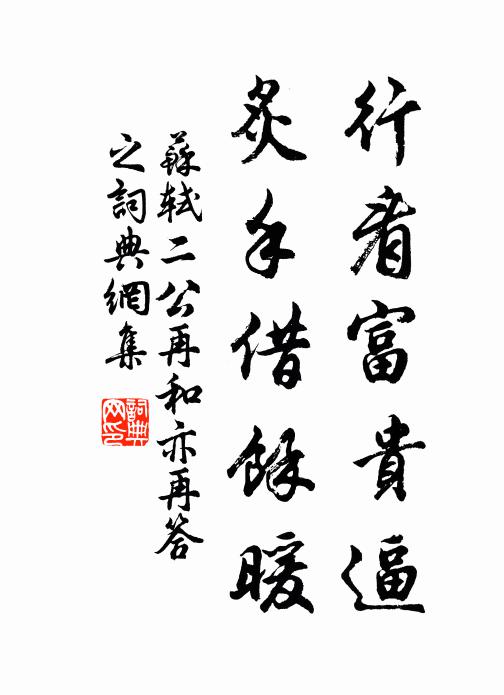 行看富貴逼
炙手借餘暖
蘇軾二公再和亦再答
之詞典網集
詞典
网印